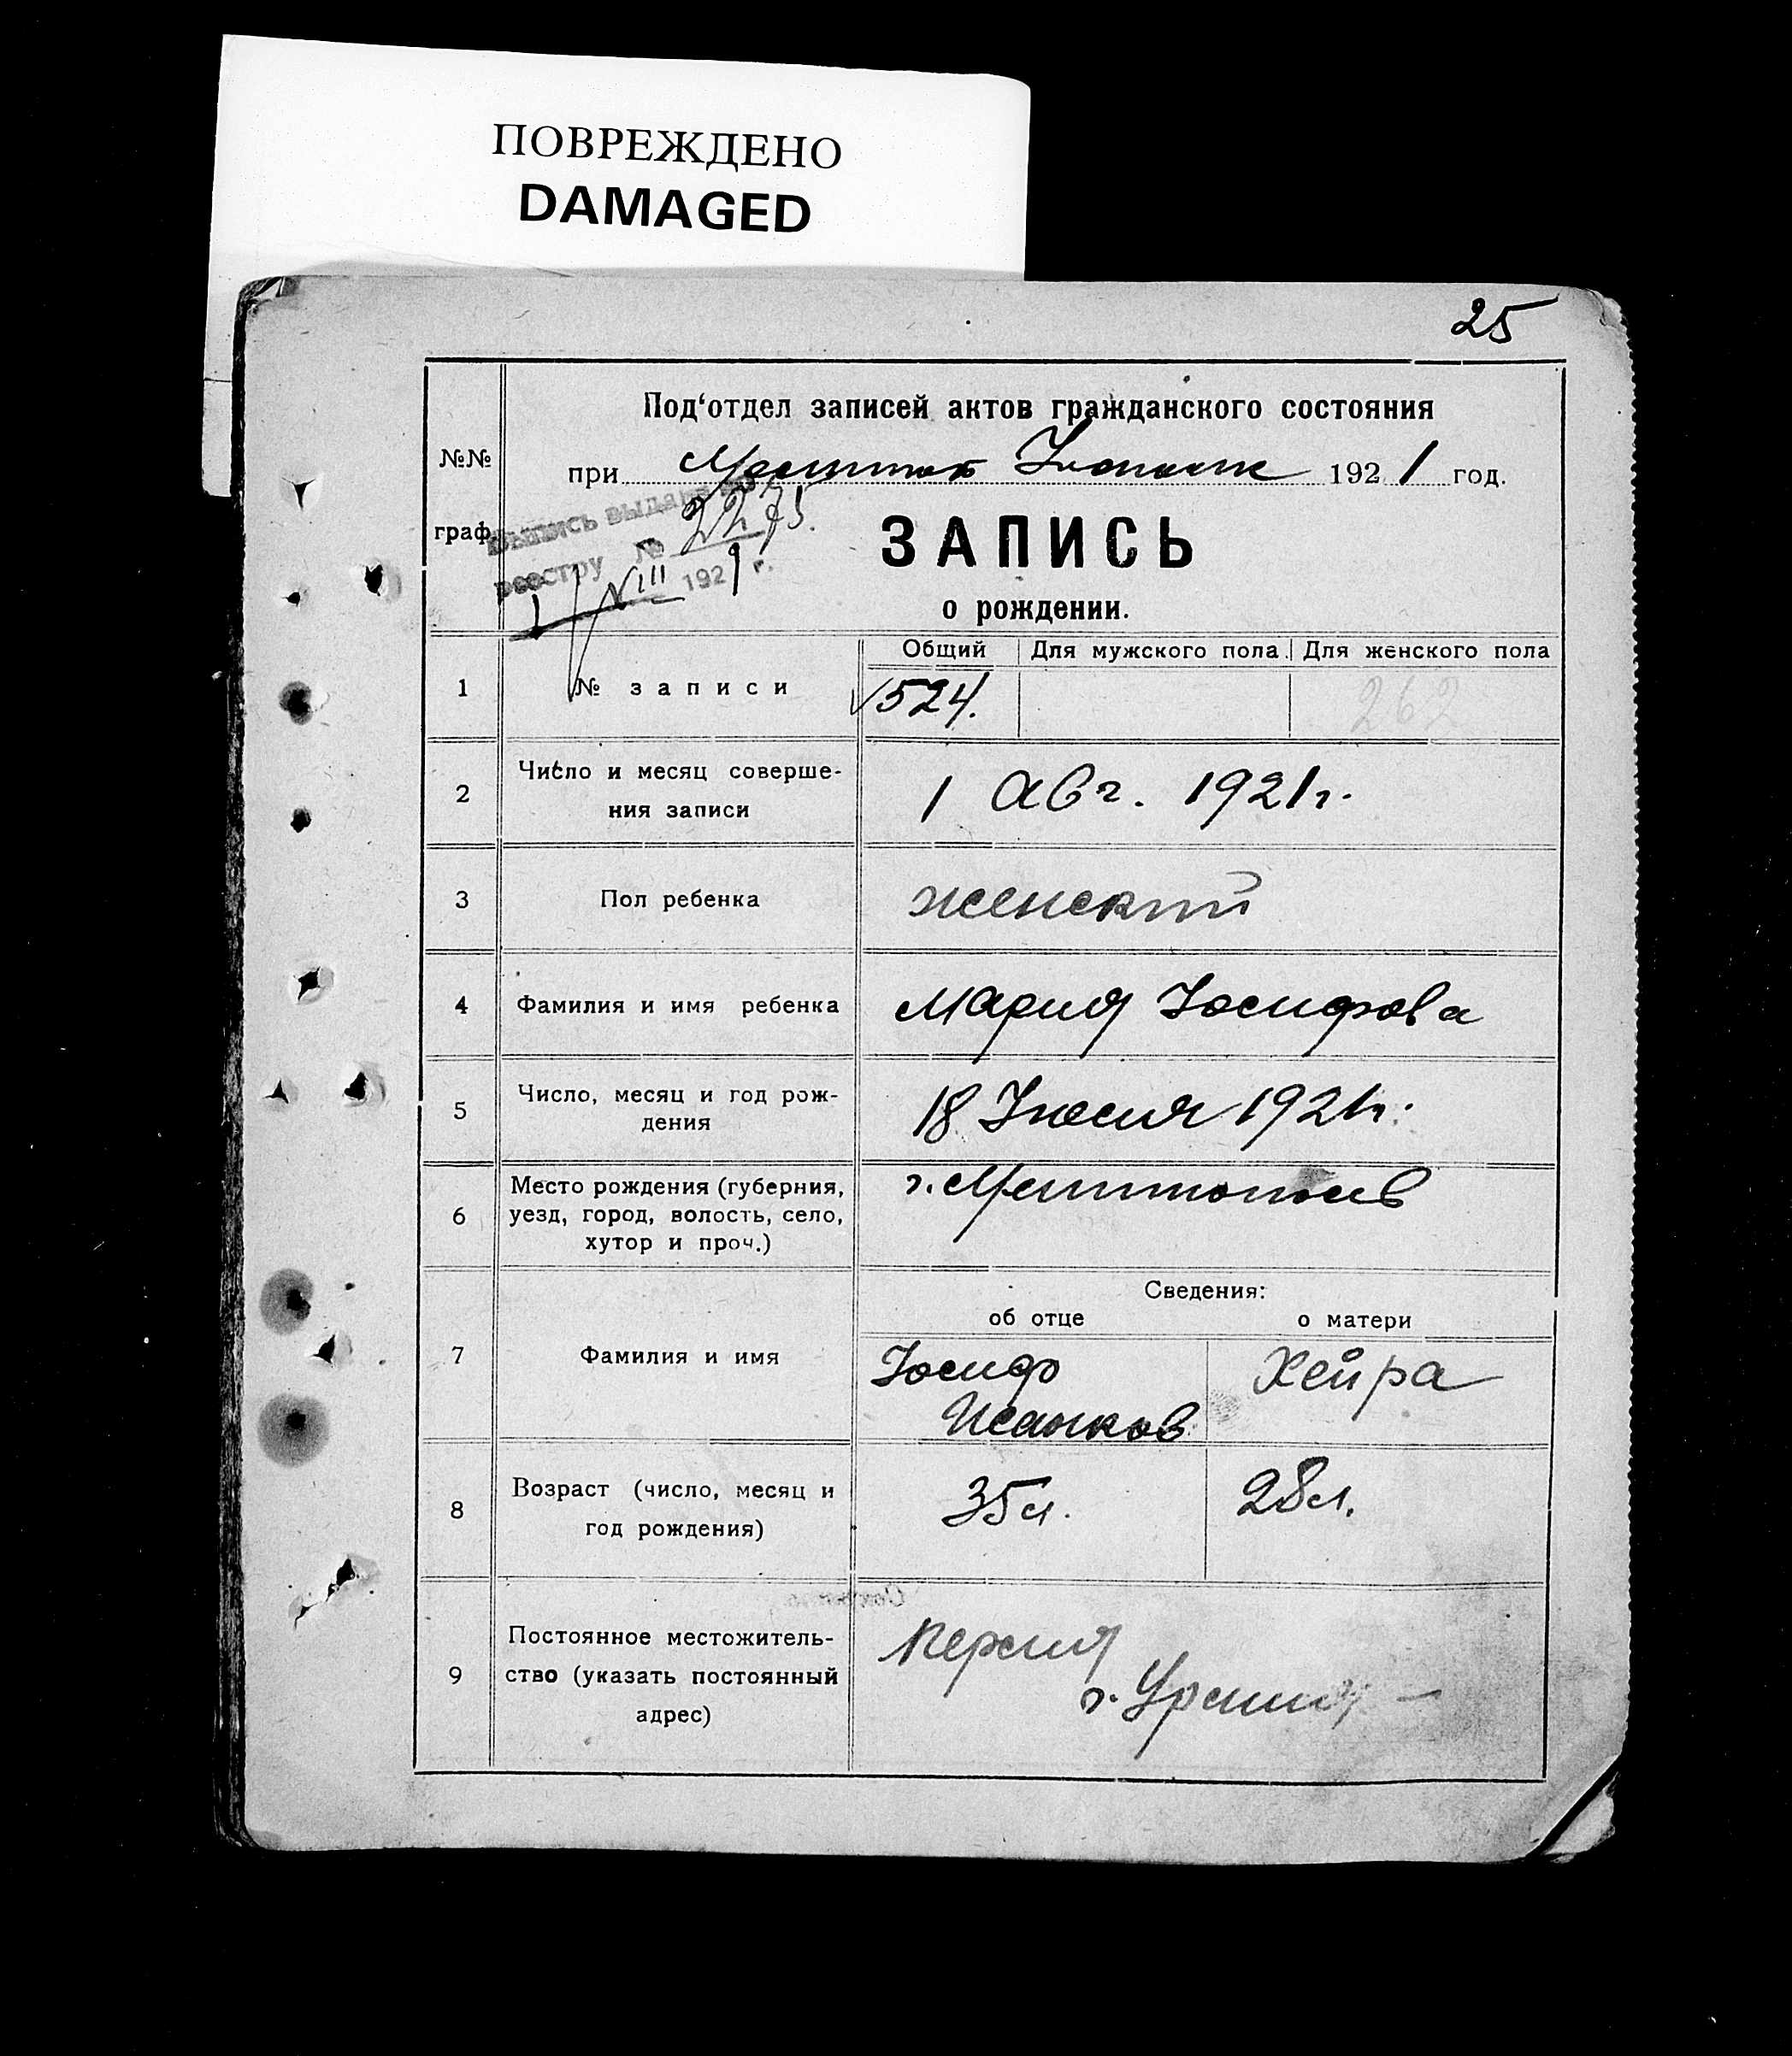 ПОВРЕЖДЕНО
DAMAGED
25
Под‘отдел записей актов гражданского состояния
№№
при 1921 год.
граф.
Выпись выдана по
реестру № 2275.
1 VIII 1921 г.
ЗАПИСЬ
о рождении.
Общий Для мужского пола. Для женского пола
1 № записи 524. 262
2 Число и месяц соверше-
ния записи
1 Авг. 1921г.
3 Пол ребенка женский
4 Фамилия и имя ребенка Мария Иосифова
5 Число, месяц и год рож-
дения
18 1921г.
6 Место рождения (губерния,
уезд, город, волость, село,
хутор и проч.)
г. Мелитополь
Сведения:
об отце о матери
7 Фамилия и имя
Иосиф Хейра
8 Возраст (число, месяц и
год рождения)
35 л. 28 л.
9 Постоянное местожитель-
ство (указать постоянный
адрес)
Персия
г. Урмия